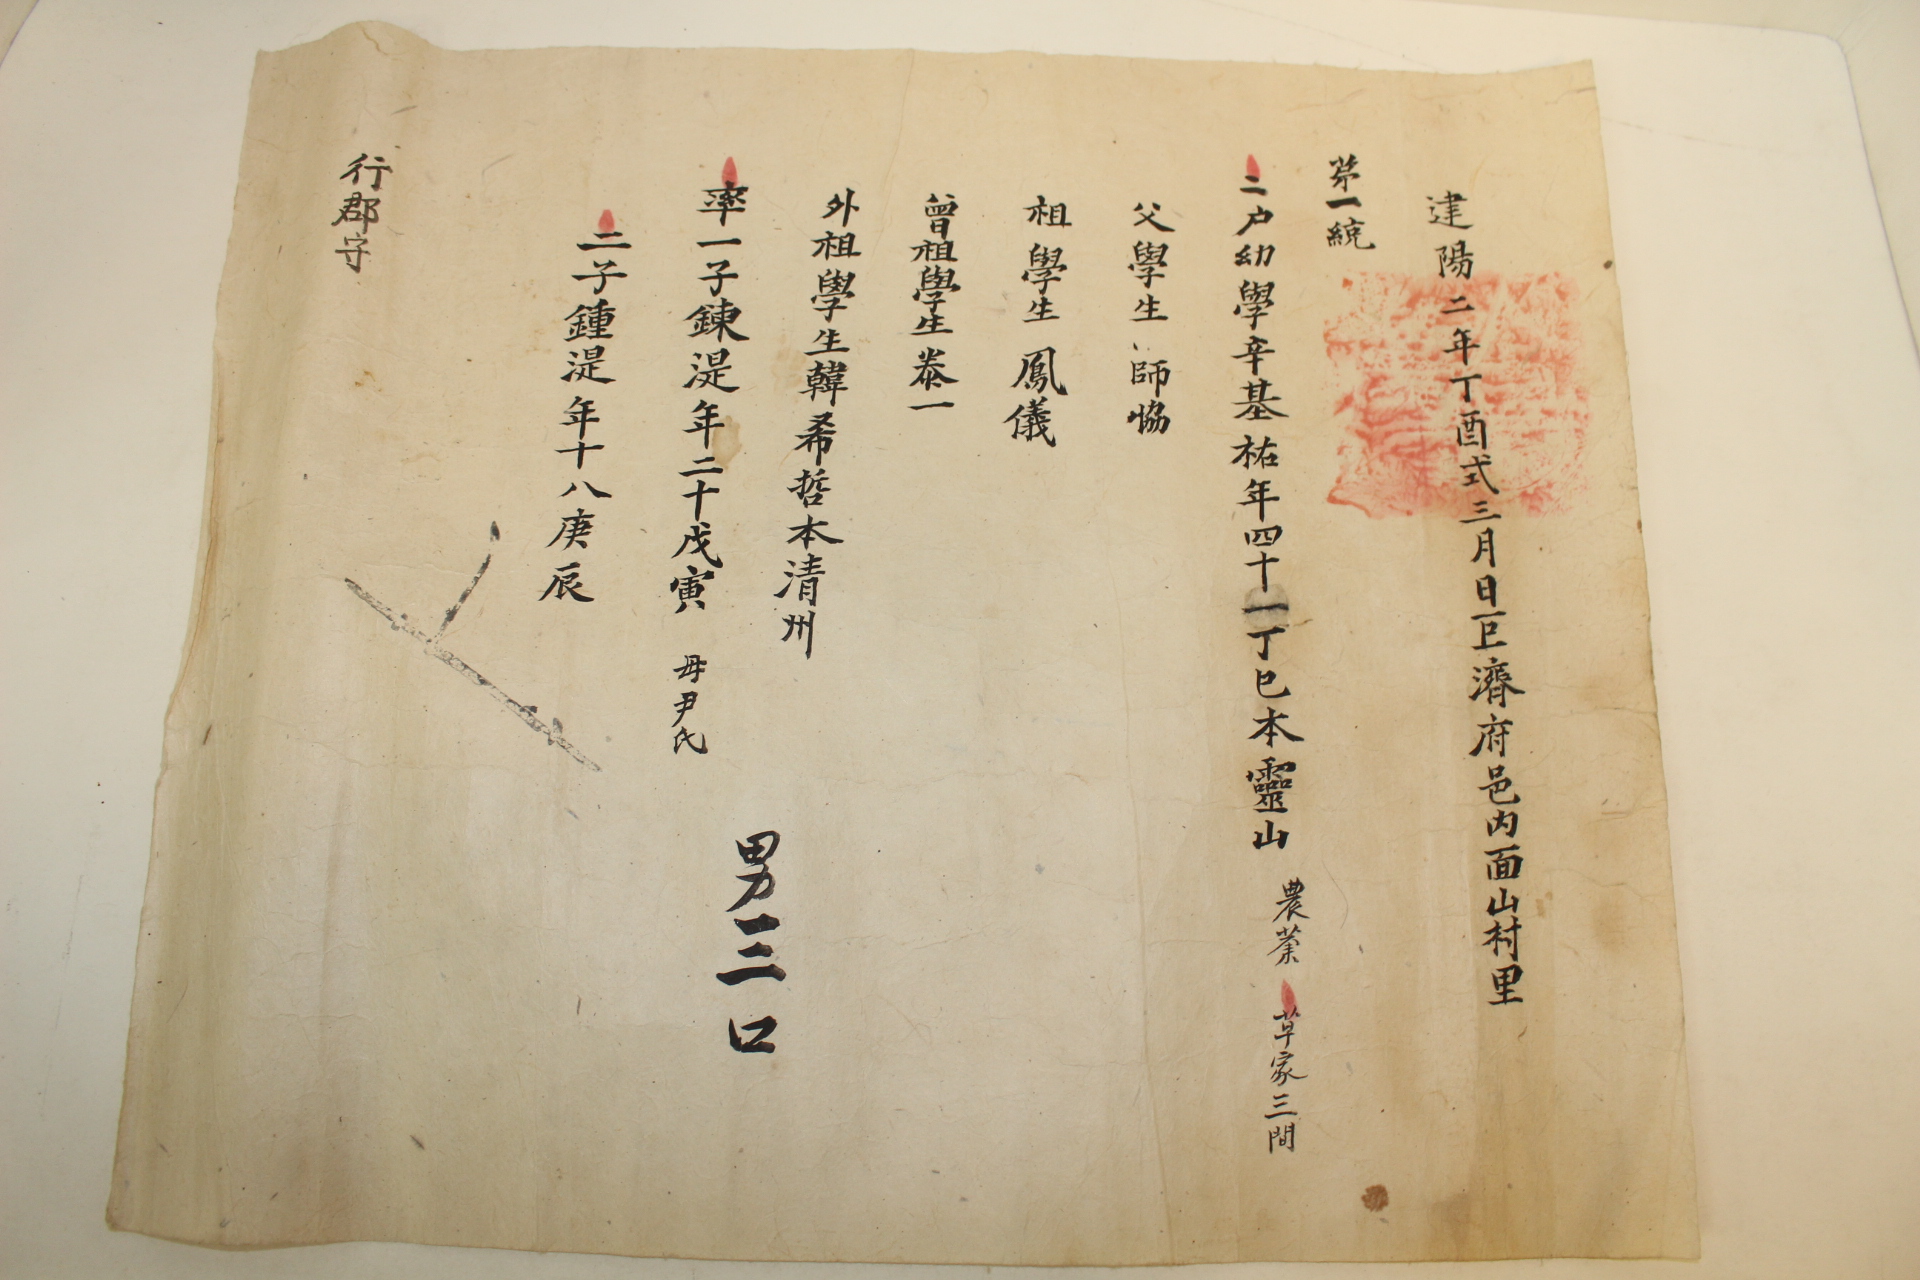 建陽二年丁酉式三月日巨濟府邑內面山村里
第一統
二戶幼學辛基祐年四十一丁巳本靈山 農業 草家三間
父學生師協
祖學生鳳儀
曾祖學生泰一
外祖學生韓希哲本清州
率一子鍊湜年二十戊寅 母尹氏
男三口
二子鍾湜年十八庚辰
行郡守